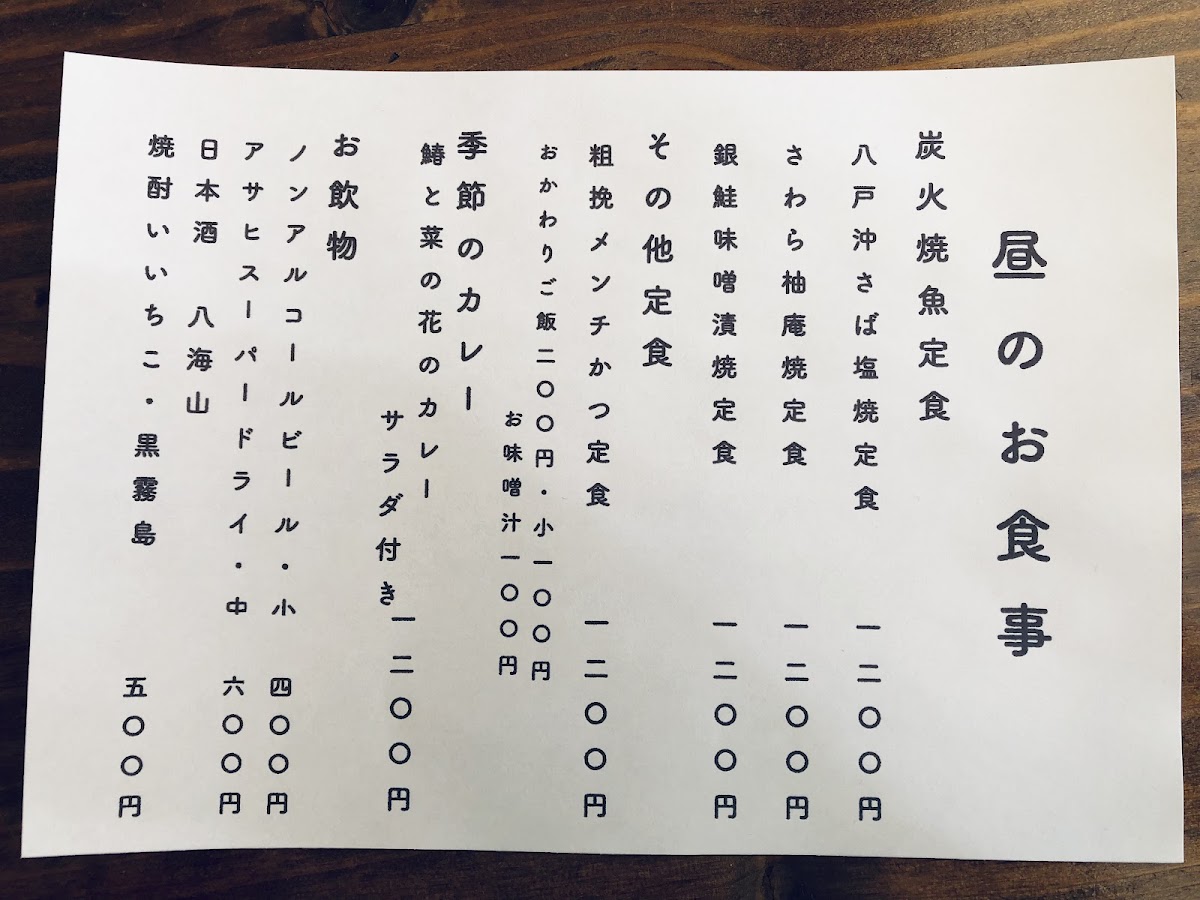 昼のお食事
炭火焼魚定食
八戸沖さば塩焼定食 一二〇〇円
さわら柚庵焼定食 一二〇〇円
銀鮭味噌漬焼定食 一二〇〇円
その他定食
粗挽メンチかつ定食 一二〇〇円
おかわりご飯二〇〇円・小一〇〇円
お味噌汁一〇〇円
季節のカレー
鰆と菜の花のカレー
サラダ付き 一二〇〇円
お飲物
ノンアルコールビール・小 四〇〇円
アサヒスーパードライ・中 六〇〇円
日本酒 八海山
焼酎いいちこ・黒霧島 五〇〇円